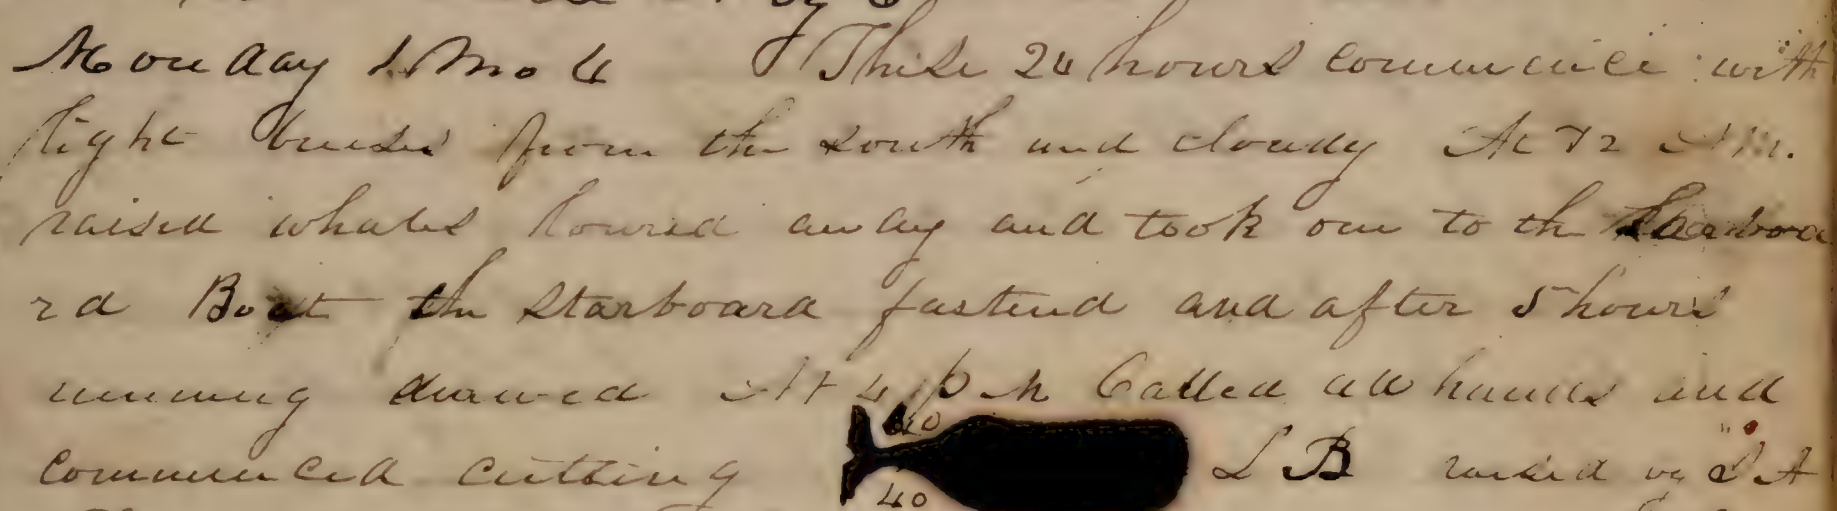 Monday 1 Mo 4 These 24 hours commence with
light breeses from the south and cloudy At 7 2 AM.
raised whales lowred away and took one to the Larboa
rd Boat the Starboard fastend and after 5 hours
running drawed At 4 PM Called all hands and
commenced cutting 40 40 L B raised by